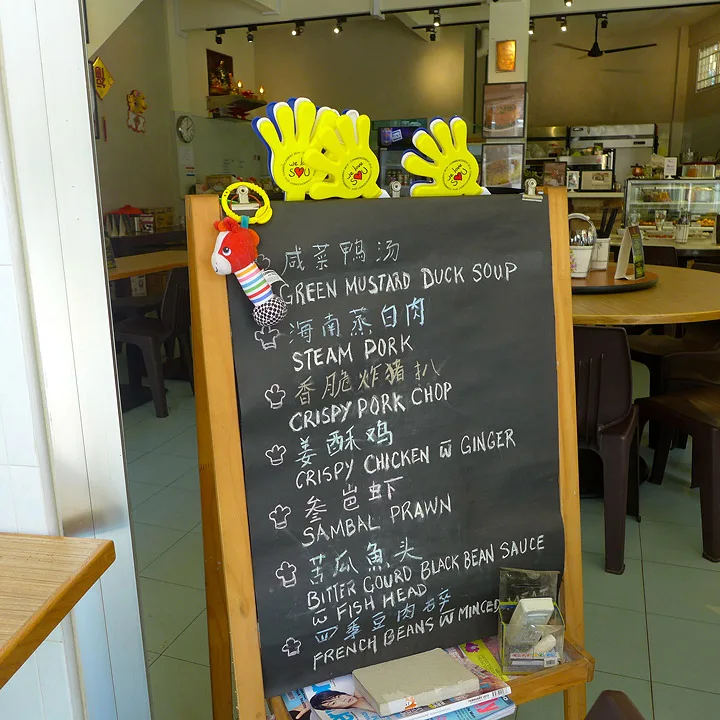 we love
SOU
we love
SOU
we love
SOU
咸菜鸭汤
GREEN MUSTARD DUCK SOUP
海南蒸白肉
STEAM PORK
香脆炸猪扒
CRISPY PORK CHOP
姜酥鸡
CRISPY CHICKEN w̅ GINGER
参岜虾
SAMBAL PRAWN
苦瓜魚头
BITTER GOURD BLACK BEAN SAUCE
w̅ FISH HEAD
四季豆肉碎
FRENCH BEANS w̅ MINCED